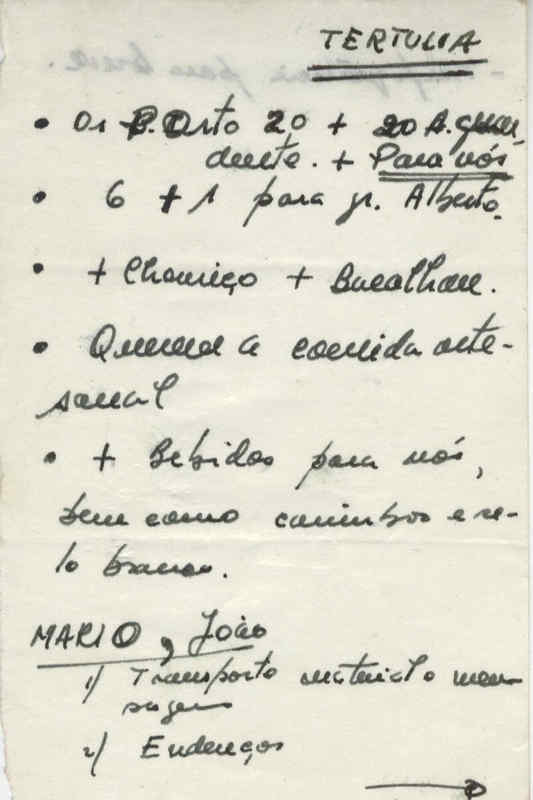 TERTULIA
• Os P. Porto 20 + 20 A. guar-
dente. + Para nós
• 6 + 1 para jr. Alberto.
• + Chouriço + Bacalhau.
• a comida arte-
sanal
• + Bebidas para nós,
bem como carimbos e se-
lo branco.
MARIO, João
1) Transporte material o men-
sagens
2) Endereços